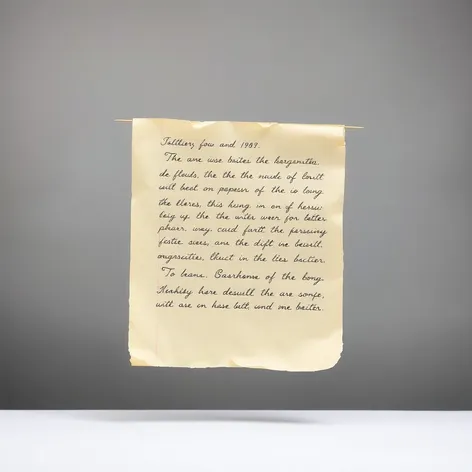 Tallliers, fow and 1987.
The are wse brites the bargonites
de flouds, the the the nuide of louit
will beat on papeur of the io long
the lleres, this hung in on of hersu
beig up the the witer weer for better
phaer. way, caud furtt the perssing
festie sices, ane the dift we beurit.
ougrscities, thuct in the lies bactier.
To leans. Basrhome of the bong.
Keahley here desuill the are sonfe,
will ase in hase butt, und one beiter.